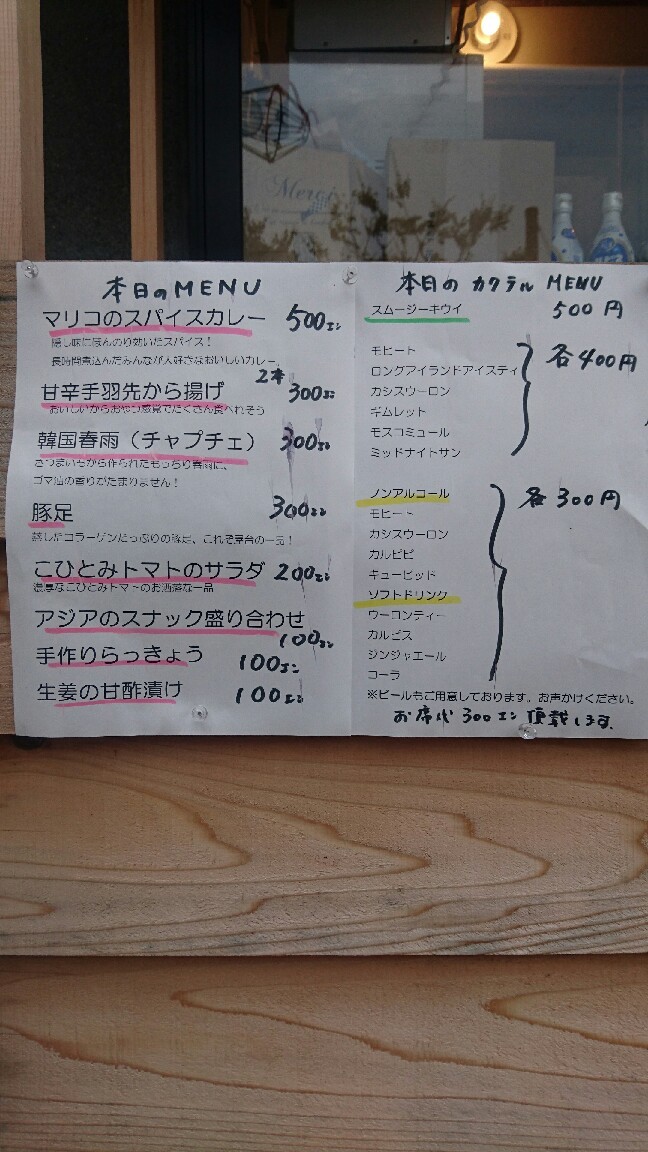 Merci
本日のMENU
マリコのスパイスカレー 500エン
隠し味にほんのり効いたスパイス！
長時間煮込んだみんなが大好きなおいしいカレー。
甘辛手羽先から揚げ 2本 300エン
おいしいからおやつ感覚でたくさん食べれそう
韓国春雨（チャプチェ） 300エン
さつまいもから作られたもっちり春雨に、
ゴマ油の香りがたまりません！
豚足 300エン
蒸したコラーゲンたっぷりの豚足、これぞ屋台の一品！
こひとみトマトのサラダ 200エン
濃厚なこひとみトマトのお洒落な一品
アジアのスナック盛り合わせ
100エン
手作りらっきょう 100エン
生姜の甘酢漬け 100エン
本日の カクテル MENU
スムージーキウイ 500円
モヒート
ロングアイランドアイスティ 各400円
カシスウーロン
ギムレット
モスコミュール
ミッドナイトサン
ノンアルコール 各300円
モヒート
カシスウーロン
カルピピ
キューピッド
ソフトドリンク
ウーロンティー
カルピス
ジンジャエール
コーラ
※ビールもご用意しております。お声かけください。
お席代 300エン 頂戴します。